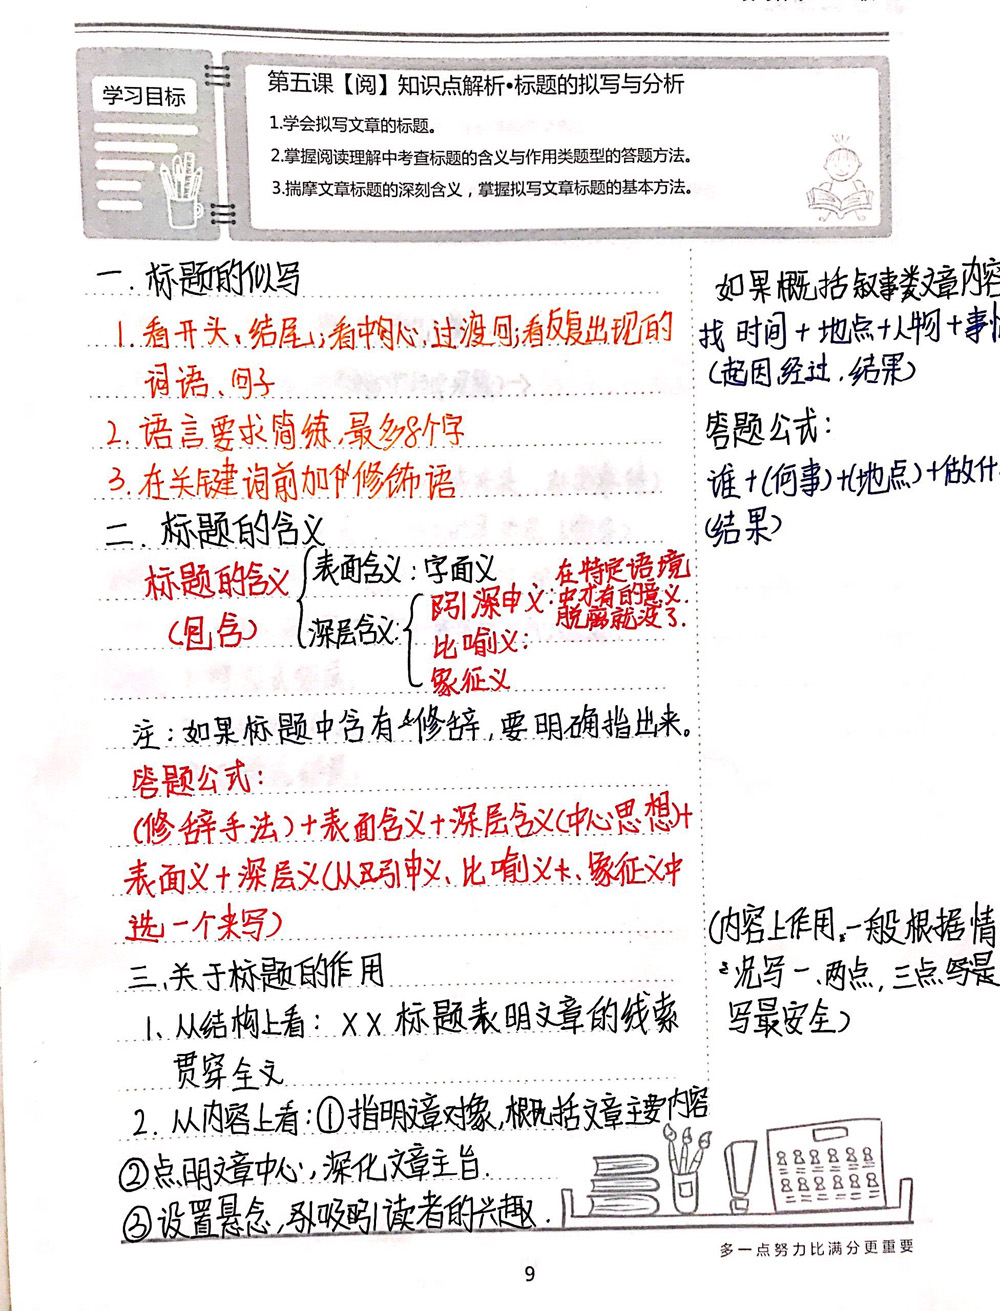 学习目标
第五课【阅】知识点解析•标题的拟写与分析
1.学会拟写文章的标题。
2.掌握阅读理解中考查标题的含义与作用类题型的答题方法。
3.揣摩文章标题的深刻含义，掌握拟写文章标题的基本方法。
一.标题的似写
1.看开头、结尾；看中心，过渡句；看反复出现的
词语、句子
2.语言要求简练,最多8个字
3.在关键词前加个修饰语
二.标题的含义
标题的含义
(包含)
表面含义:字面义
深层含义:
引深申义:
在特定语境
中才有的意义.
脱离就没了.
比喻义:
象征义
注:如果标题中含有修辞,要明确指出来。
答题公式:
(修辞手法)+表面含义+深层含义(中心思想)+
表面义+深层义(从引申义、比喻义、象征义中
选一个来写)
三、关于标题的作用
1、从结构上看:XX标题表明文章的线索
贯穿全文
2.从内容上看:①指明文章对象,概括文章主要内容
②点明文章中心,深化文章主旨.
③设置悬念,吸引读者的兴趣.
如果概括叙事类文章内容
找 时间+地点+人物+事情
(起因,经过.结果)
答题公式:
谁+(何事)+(地点)+做什
(结果)
(内容上作用,一般根据情
况写一、两点,三点写是
写最安全)
多一点努力比满分更重要
9